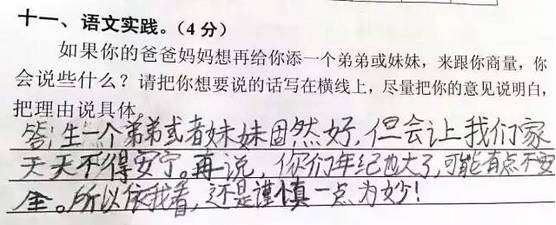 十一、语文实践。（4分）
如果你的爸爸妈妈想再给你添一个弟弟或妹妹，来跟你商量，你
会说些什么？请把你想要说的话写在横线上，尽量把你的意见说明白，
把理由说具体。
答：生一个弟弟或者妹妹固然好，但会让我们家
天天不得安宁。再说，你们年纪也大了，可能有点不安
全。所以依我看，还是谨慎一点为妙！